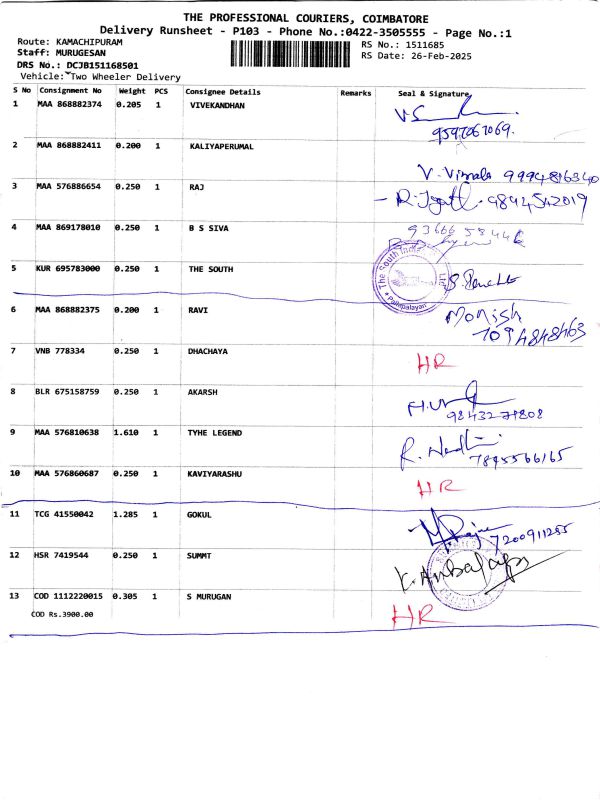 THE PROFESSIONAL COURIERS, COIMBATORE
Delivery Runsheet - P103 - Phone No.:0422-3505555 - Page No.:1
Route: KAMACHIPURAM
Staff: MURUGESAN
DRS No.: DCJB151168501
Vehicle: Two Wheeler Delivery
RS No.: 1511685
RS Date: 26-Feb-2025
S No Consignment No Weight PCS Consignee Details Remarks Seal & Signature
1 MAA 868882374 0.205 1 VIVEKANDHAN
9597067069.
2 MAA 868882411 0.200 1 KALIYAPERUMAL
V. Vimala 9994816340
3 MAA 576886654 0.250 1 RAJ
9844542019
4 MAA 869178010 0.250 1 B S SIVA
5 KUR 695783000 0.250 1 THE SOUTH
The South Ltd
Palpalayam
6 MAA 868882375 0.200 1 RAVI
Monish
7094848463
7 VNB 778334 0.250 1 DHACHAYA
HR
8 BLR 675158759 0.250 1 AKARSH
9843271808
9 MAA 576810638 1.610 1 TYHE LEGEND
7845566165
10 MAA 576860687 0.250 1 KAVIYARASHU
HR
11 TCG 41550042 1.285 1 GOKUL
7200911255
12 HSR 7419544 0.250 1 SUMMT
13 COD 1112220015 0.305 1 S MURUGAN
HR
COD Rs.3900.00